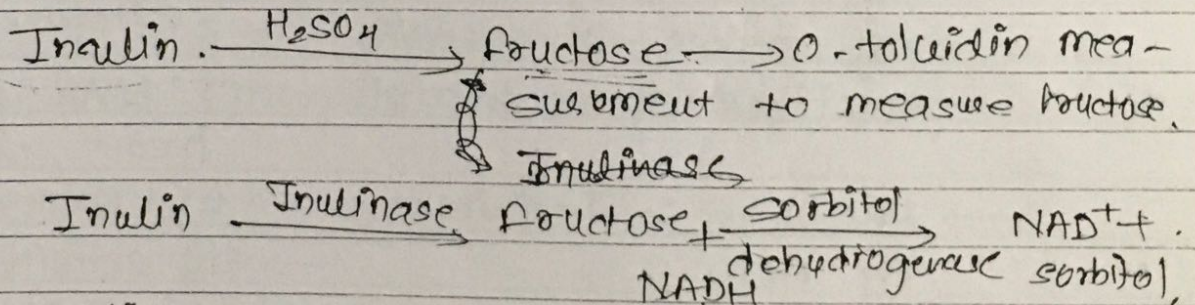 Inulin. H₂SO₄ → fructose → O-toluidin mea-
surement to measure fructose.
Inulinase
Inulin Inulinase → fructose + NADH sorbitol dehydrogenase → NAD⁺ + sorbitol.